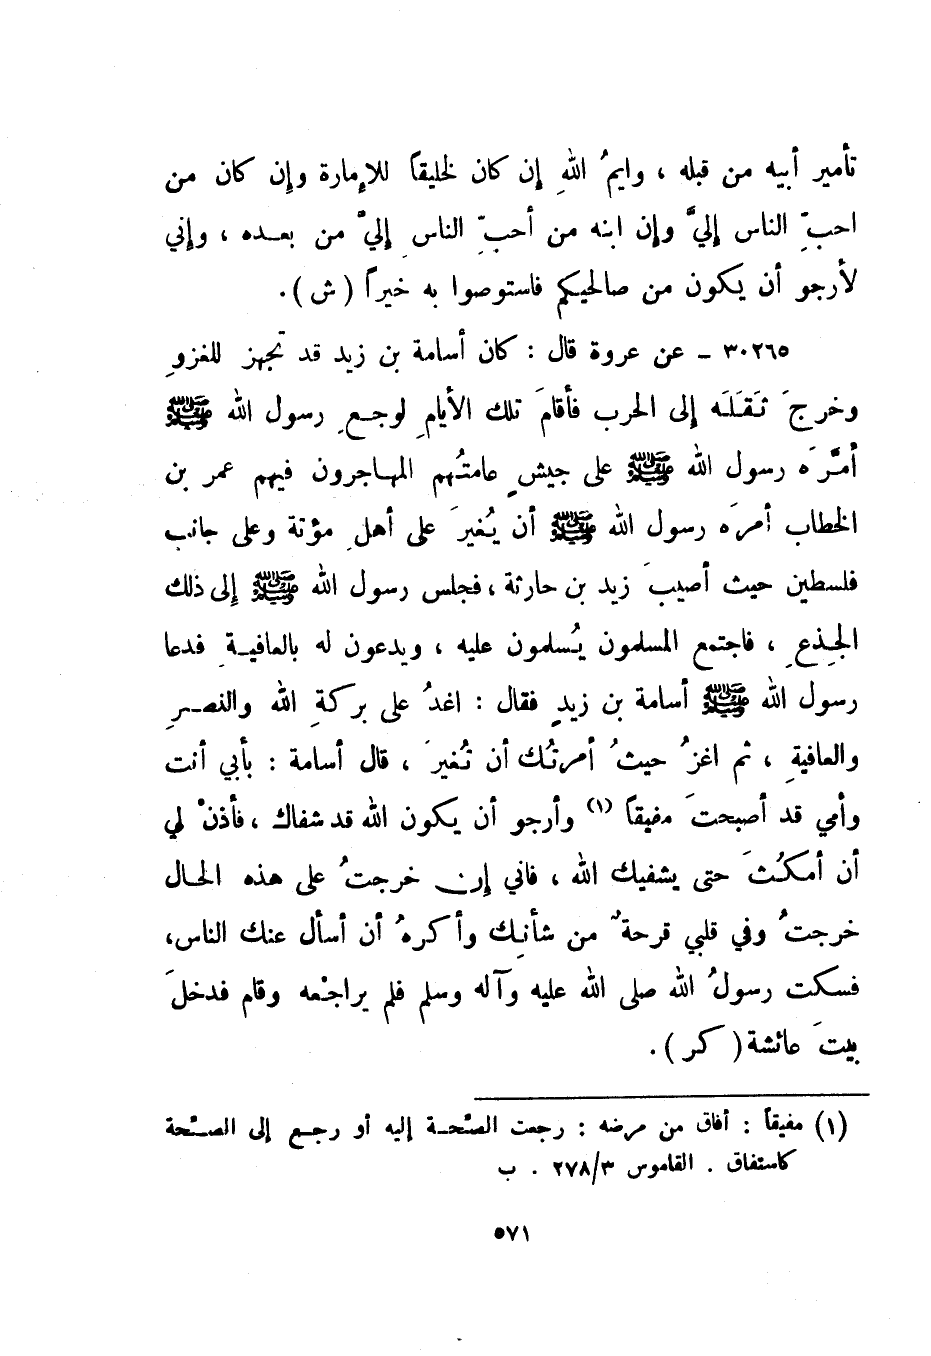 تأمير أبيه من قبله ، وايمُ اللهِ إن كان لخليقاً للإمارة وإن كان من
احبِّ الناس إليَّ وإن ابنه من أحبِّ الناسِ إليَّ من بعده ، وإني
لأرجو أن يكون من صالحيكم فاستوصوا به خيراً ( ش ) .
٣٠٢٦٥ ـ عن عروة قال : كان أسامة بن زيد قد تجهز للغزوِ
وخرجَ ثَقَلَه إلى الحرب فأقامَ تلك الأيامِ لوجعِ رسول الله ﷺ
أمَّرَه رسول الله ﷺ على جيشٍ عامتُهم المهاجرون فيهم عمر بن
الخطاب أمرَه رسول الله ﷺ أن يُغيرَ على أهلِ مؤتة وعلى جانب
فلسطين حيث أصيبَ زيد بن حارثة ، فجلس رسول الله ﷺ إلى ذلك
الجِذعِ ، فاجتمع المسلمون يُسلمون عليه ، ويدعون له بالعافيةِ فدعا
رسول الله ﷺ أسامة بن زيدٍ فقال : اغدُ على بركةِ الله والنصرِ
والعافيةِ ، ثم اغزُ حيثُ أمرتُك أن تُغيرَ ، قال أسامة : بأبي أنت
وأمي قد أصبحتَ مفيقاً (١) وأرجو أن يكون الله قد شفاك ، فأذنْ لي
أن أمكُثَ حتى يشفيك الله ، فاني إن خرجتُ على هذه الحال
خرجتُ وفي قلبي قرحةٌ من شأنِك وأكرهُ أن أسأل عنك الناس،
فسكت رسولُ الله صلى الله عليه وآله وسلم فلم يراجعْه وقام فدخلَ
بيتَ عائشة ( كر ) .
(١) مفيقاً : أفاق من مرضه : رجعت الصّحة إليه أو رجع إلى الصّحة
كاستفاق . القاموس ٢٧٨/٣ . ب
٥٧١